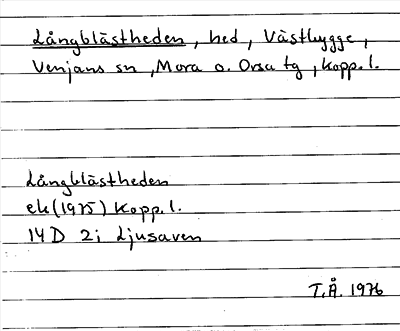 Långblästheden, hed, Västbygge,
Venjans sn, Mora o. Orsa tg, Kopp. l.
Långblästheden
ek (1975) Kopp. l.
14D 2i Ljusaven
T.Å. 1976